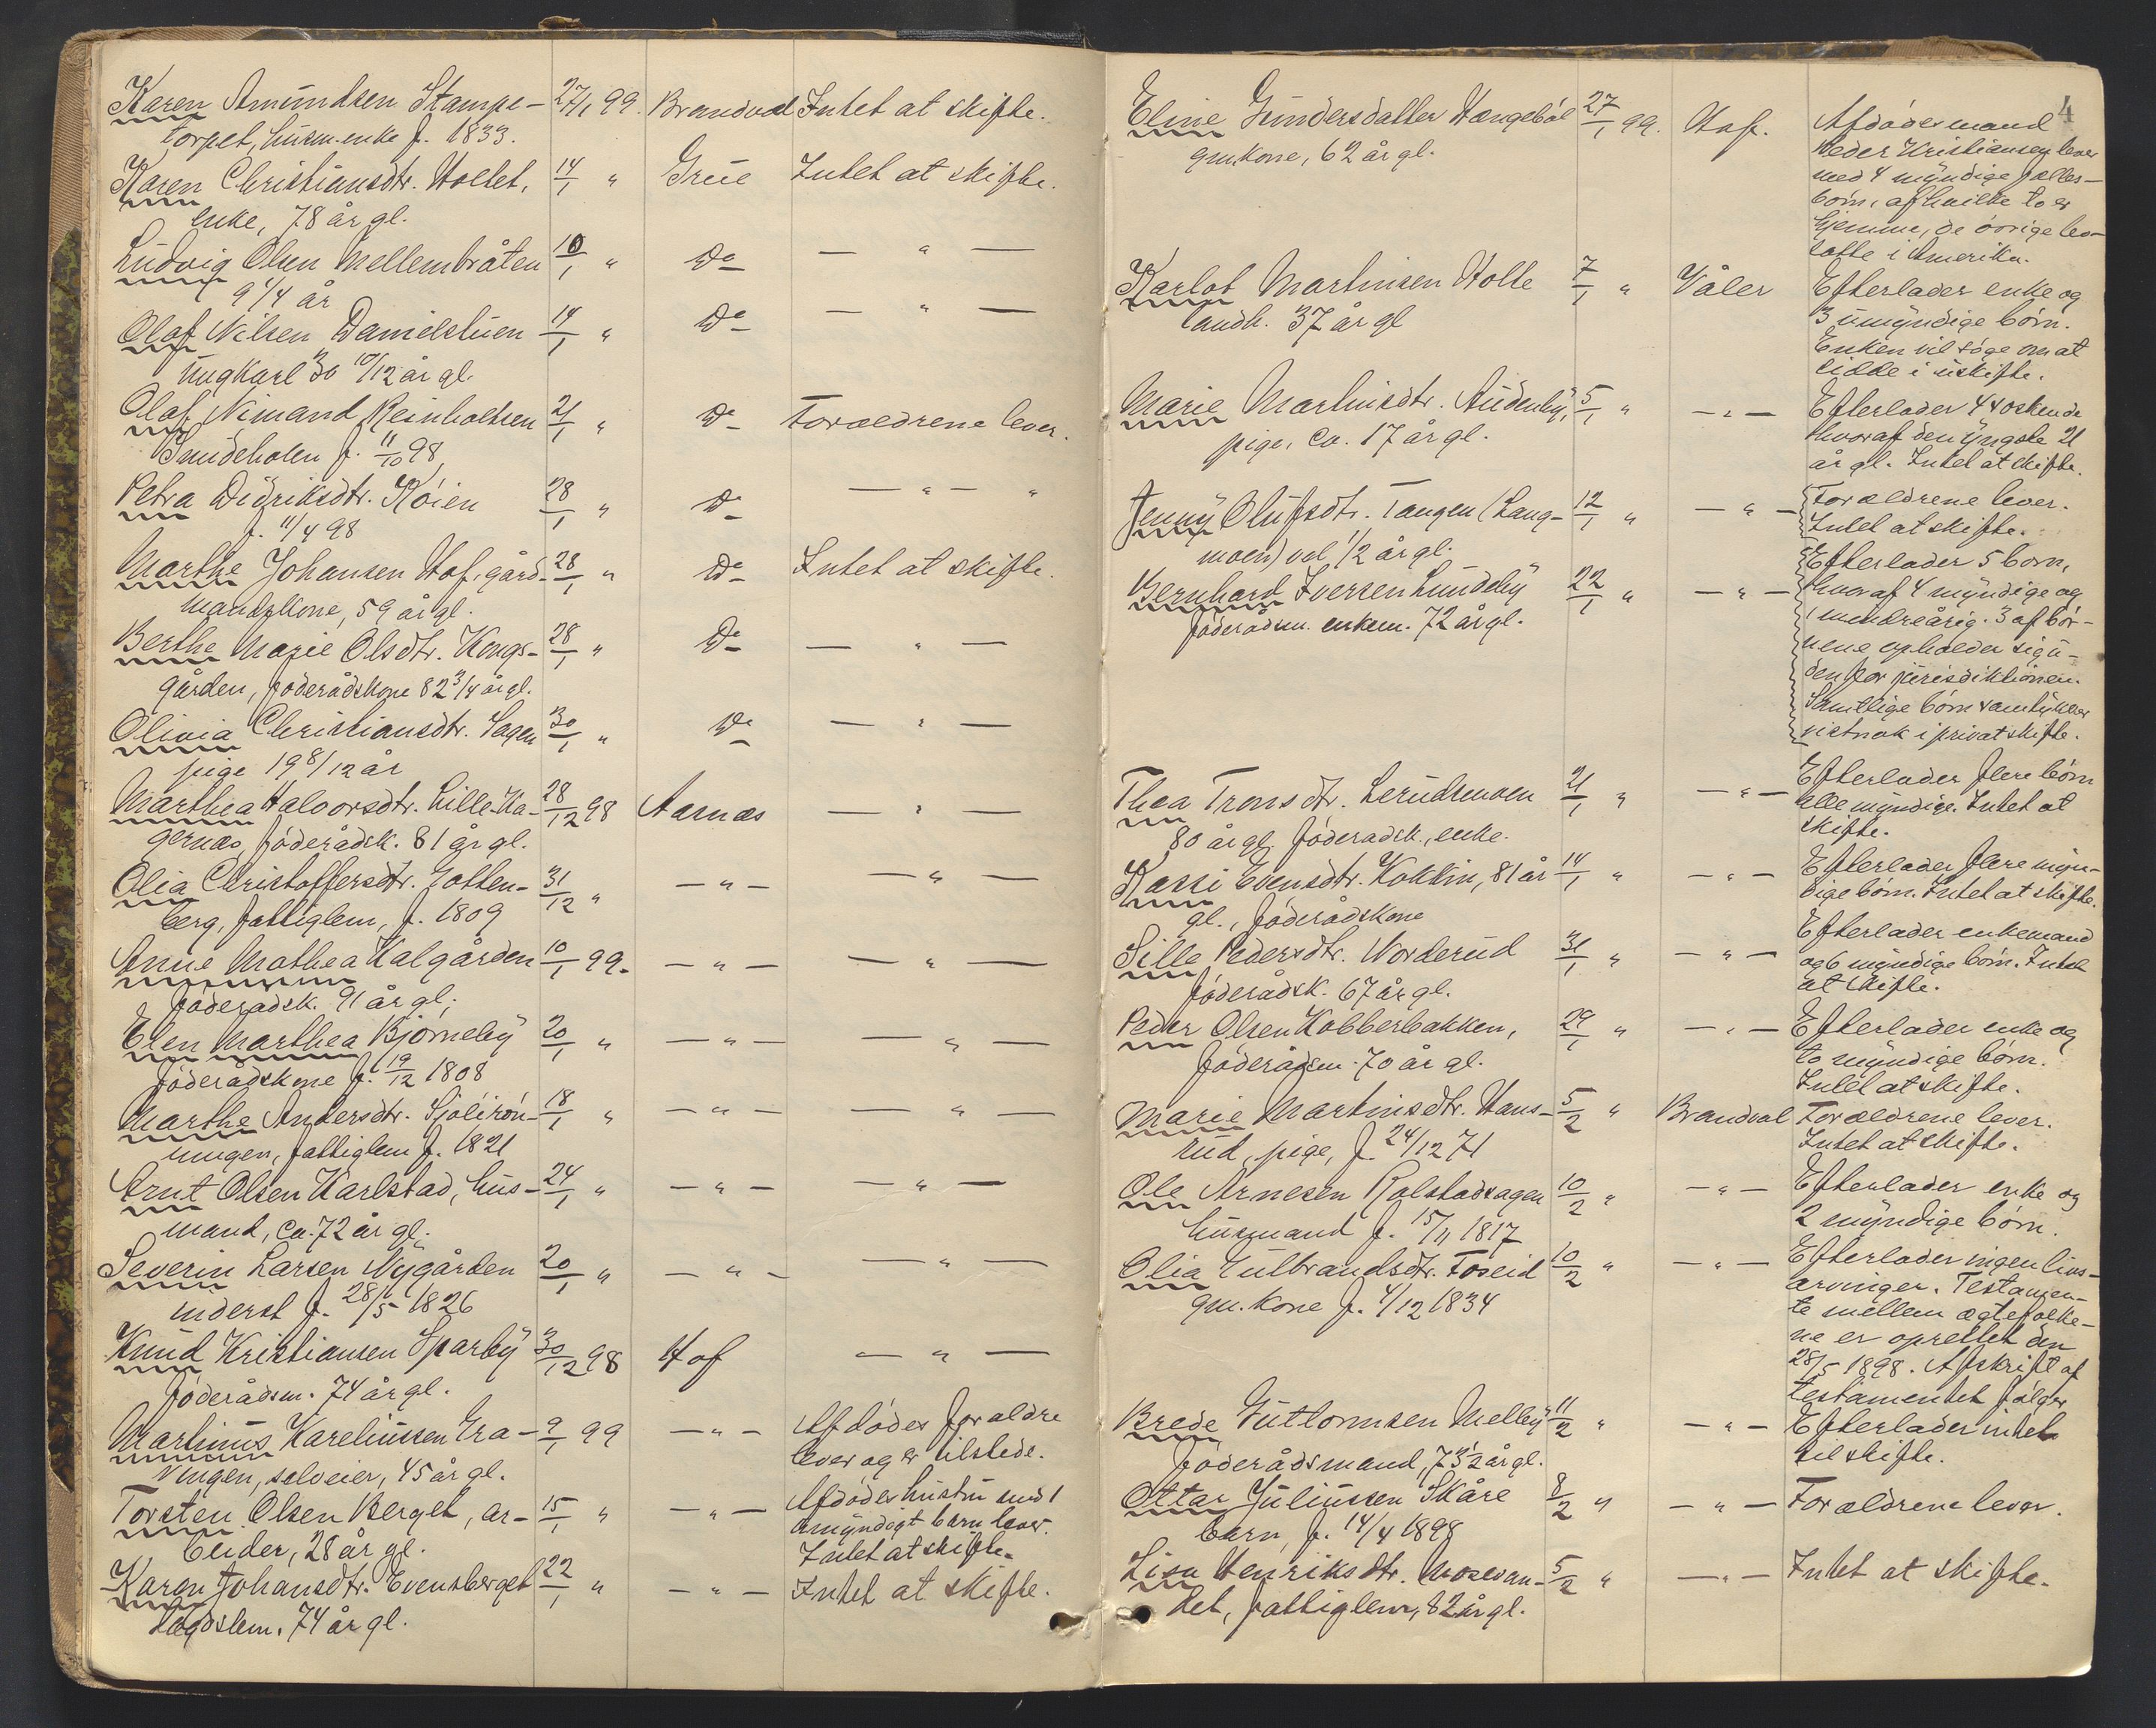 Karen Amundsen Stampe- 27/1 99. Brandval Intet at skifte.
torpet, husm.enke f. 1833.
Karen Christiansdtr. Holtet, 14/1 " Grue Intet at skifte.
enke, 78 år gl.
Ludvig Olsen Mellembråten 10/1 " Do — " —
9 1/4 år
Olaf Nilsen Danielstuen 14/1 " Do — " —
Ungkarl 30 10/12 år gl.
Olaf Nimand Reinholtsen 21/1 " Do Forældrene lever.
f. 11/10 98
Petra Didriksdtr. Röien 28/1 " Do — " — "
f. 11/4 98
Marthe Johansen Hof, gård- 28/1 " Do Intet at skifte.
mandskone, 59 år gl.
Berthe Marie Olsdtr. Kongs- 28/1 " Do — " —
gården, föderådskone 82 3/4 år gl.
Olivia Christiansdtr. Sagen 30/1 " Do — " —
pige 19 8/12 år
Marthea Halvorsdtr. Lille-Ha- 28/12 98 Aarnæs — " —
gernæs, föderådsk. 81 år gl.
Olia Christoffersdtr. Gotten- 31/12 " — " — — " —
berg, fattiglem, f. 1809
Anne Mathea Kalgården 10/1 99. — " — — " —
föderadsk. 91 år gl.
Elen Marthea Björneby 20/1 " — " — — " —
föderådskone f. 19/12 1808
Marthe Andersdtr. 18/1 " — " — — " —
ningen, fattiglem f. 1821
Arnt Olsen Karlstad, hus- 24/1 " — " — — " —
mand, ca. 72 år gl.
Severin Larsen Nygården 20/1 " — " — — " —
inderst f. 28/5 1826
Knud Kristiansen Sparby 30/12 98 Hof — " —
föderådsm. 74 år gl.
Martinus Kareliussen Gra- 9/1 99 — " — Afdödes forældre
vingen, selveier, 45 år gl. lever og er tilstede.
Torsten Olsen Berget, ar- 15/1 " — " — Afdödes hustru med 1
beider, 28 år gl. umyndigt barn lever.
Intet at skifte.
Karen Johansdtr. Evensberget 22/1 " — " — Intet at skifte.
Lægdslem. 74 år gl.
4
Eline Gundersdatter Hængeböl 27/1 99. Hof. Afdödes mand
gmkone, 62 år gl. Peder Kristiansen lever
med 4 myndige fælles-
börn, af hvilke to er
hjemme, de övrige bo-
satte i Amerika.
Karlot Martinsen Holte 7/1 " Våler Efterlader enke og
landh. 37 år gl 3 umyndige börn.
Enken vil söge om at
sidde i uskifte.
Marie Martinsdtr. Audenby, 5/1 " — " — Efterlader 4 söskende
pige, ca. 17 år gl. hvoraf den yngste 21
år gl. Intet at skifte.
Jenny Olufsdtr. Tangen (Lang- 12/1 " — " — Forældrene lever.
moen) vel 1/2 år gl. Intet at skifte.
Bernhard Iversen Lundeby 22/1 " — " — Efterlader 5 börn,
föderådsm. enkem. 72 år gl. hvoraf 4 myndige og
1 mindreårig. 3 af bör-
nene opholder sig u-
denfor jurisdiktionen.
Samtlige börn samtykker
vistnok i privat skifte.
Thea Tronsdtr. Lerudsmoen 21/1 " — " — Efterlader flere börn
80 år gl. föderadsk., enke. alle myndige. Intet at
skifte.
Kassi Evensdtr. Koklin, 81 år 14/1 " — " — Efterlader flere myn-
gl., föderådskone dige börn. Intet at skifte.
Sille Pedersdtr. Norderud 31/1 " — " — Efterlader enkemand
föderådsk. 67 år gl. og 6 myndige börn. Intet
at skifte.
Peder Olsen Kobberbakken, 29/1 " — " — Efterlader enke og
föderådsm. 70 år gl. to myndige börn.
Intet at skifte.
Marie Martinsdtr. Hans- 5/2 " Brandval Forældrene lever.
rud, pige, f. 24/12 71 Intet at skifte.
Ole Arnesen Rolstadsagen 10/2 " — " — Efterlader enke og
husmand f. 15/11 1817 2 myndige börn.
Olia Gulbrandsdtr. Foseid 10/2 " — " — Efterlader ingen livs-
gm.kone f. 4/12 1834 arvinger. Testamen-
te mellem ægtefolke-
ne er oprettet den
28/5 1898. Afskrift af
testamentet fölger
Brede Guttormsen Melby 11/2 " — " — Efterlader intet
föderådsmand, 73 1/2 år gl. til skifte.
Ottar Juliussen Skåre 8/2 " — " — Forældrene lever.
barn, f. 14/4 1898
Lisa Henriksdtr. 5/2 " — " — Intet at skifte.
det, fattiglem, 82 år gl.